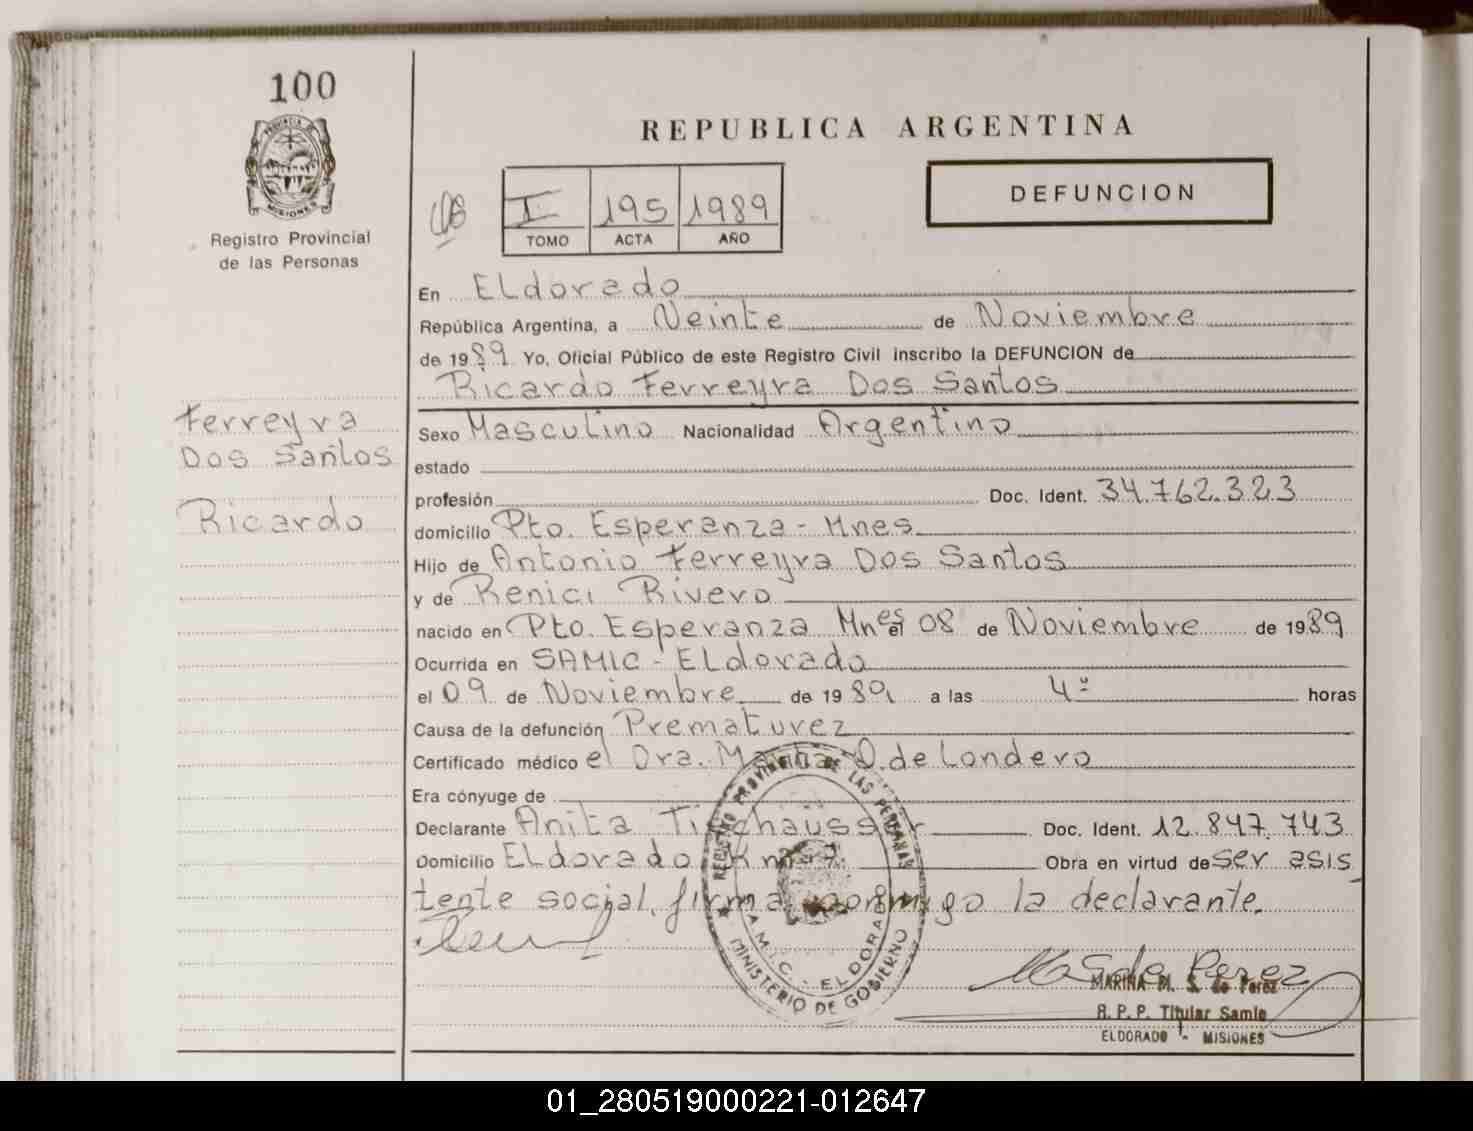 100
PROVINCIA DE
MISIONES
Registro Provincial
de las Personas
REPUBLICA ARGENTINA
DEFUNCION
I 195 1989
TOMO ACTA AÑO
En Eldorado
República Argentina, a Veinte de Noviembre
de 1989 Yo, Oficial Público de este Registro Civil inscribo la DEFUNCION de
Ricardo Ferreyra Dos Santos
Ferreyra
Dos Santos
Ricardo
Sexo Masculino Nacionalidad Argentino
estado
profesión Doc. Ident. 34.762.323
domicilio Pto. Esperanza - Mnes
Hijo de Antonio Ferreyra Dos Santos
y de Renici Rivero
nacido en Pto. Esperanza Mnes el 08 de Noviembre de 1989
Ocurrida en SAMIC - ELdorado
el 09 de Noviembre de 1989 a las 4º horas
Causa de la defunción Prematurez
Certificado médico el Dra. Marta O. de Londero
Era cónyuge de
Declarante Anita Doc. Ident. 12.847.743
Domicilio ELdorado Km Obra en virtud de ser asis
tente social, firma conmigo la declarante.
REGISTRO PROVINCIAL DE LAS PERSONAS
S.A.M.I.C. - ELDORADO
MINISTERIO DE GOBIERNO
M S de Perez
MARINA M. S. de Perez
R. P. P. Titular Samic
ELDORADO - MISIONES
01_280519000221-012647